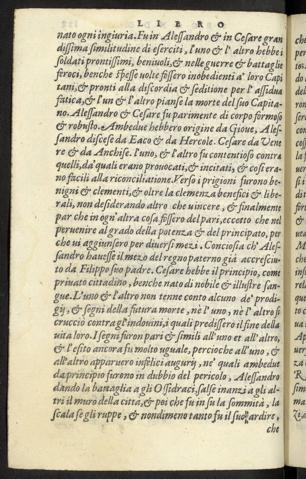 LIBRO
nato ogni ingiuria. Fu in Alessandro & in Cesare gran
dissima similitudine di eserciti, l'uno & l'altro hebbe i
soldati prontissimi, beniuoli, & nelle guerre & battaglie
feroci, benche spesse volte fossero inobedienti a' loro Capi
tani, & pronti alla discordia & seditione per l'assidua
fatica, & l'un & l'altro pianse la morte del suo Capita-
no. Alessandro & Cesare fu parimente di corpo formoso
& robusto. Ambedue hebbero origine da Gioue, Ales-
sandro discese da Eaco & da Hercole. Cesare da Vene
re & da Anchise. l'uno, & l'altro fu contentioso contra
quelli, da' quali erano prouocati, & incitati, & cosi era-
no facili alla riconciliatione. Verso i prigioni furono be-
nigni & clementi, & oltre la clemenza benefici & libe-
rali, non desiderando altro che vincere, & finalmente
par che in ogn'altra cosa fossero del pari, eccetto che nel
peruenire al grado della potenza & del principato, per
che vi aggiunsero per diuersi mezi. Conciosia ch'Ales-
sandro hauesse il mezo del regno paterno già accresciu-
to da Filippo suo padre. Cesare hebbe il principio, come
priuato cittadino, benche nato di nobile & illustre san-
gue. L'uno & l'altro non tenne conto alcuno de' prodi-
gij, & segni della futura morte, nè l'uno, nè l'altro si
crucciò contra gl'indouini, a quali predissero il fine della
vita loro. I segni furon pari & simili all'uno et all'altro,
& l'esito ancora fu molto uguale, percioche all'uno, &
all'altro apparuero infelici augurij, ne' quali ambedue
da principio furono in dubbio del pericolo, Alessandro
dando la battaglia a gli Ossidraci, salse inanzi a gli al-
tri il muro della città, & poi che fu in su la sommità, la
scala se gli ruppe, & nondimeno tanto fu il suo ardire,
che